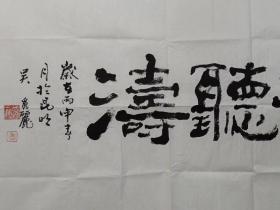 聽濤
歲在丙申年
月於昆明
吳